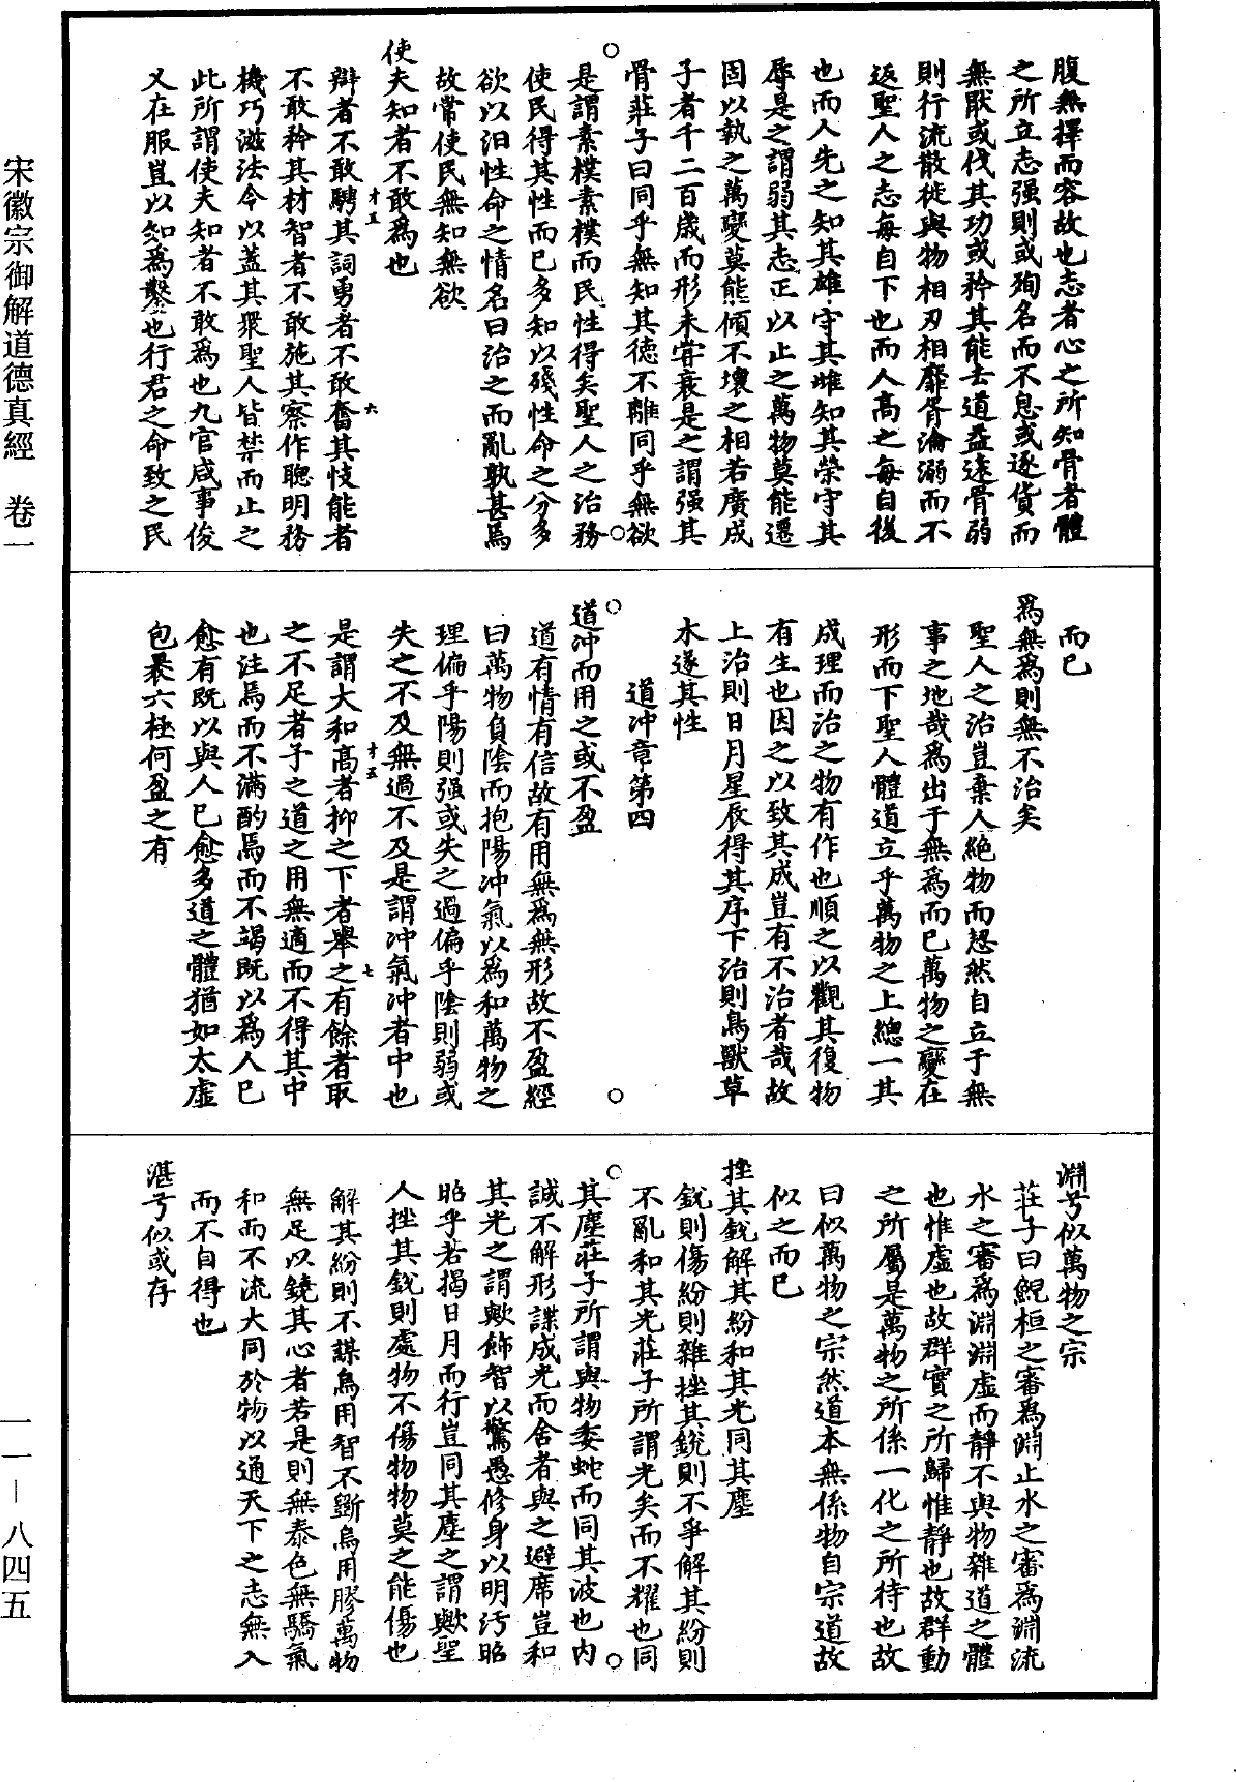 腹無擇而容故也志者心之所知骨者體
之所立志强則或殉名而不息或逐貨而
無厭或伐其功或矜其能去道益遠骨弱
則行流散徙與物相刃相靡胥淪溺而不
返聖人之志每自下也而人高之每自後
也而人先之知其雄守其雌知其榮守其
辱是之謂弱其志正以止之萬物莫能遷
固以執之萬變莫能傾不壞之相若廣成
子者千二百歲而形未甞衰是之謂强其
骨莊子曰同乎無知其德不離同乎無欲
是謂素樸素樸而民性得矣聖人之治務
使民得其性而已多知以殘性命之分多
欲以汩性命之情名曰治之而亂孰甚焉
故常使民無知無欲
使夫知者不敢爲也
才五
辯者不敢騁其詞勇者不敢奮其忮能者
六
不敢矜其材智者不敢施其察作聰明務
機巧滋法令以蓋其衆聖人皆禁而止之
此所謂使夫知者不敢爲也九官咸事俊
乂在服豈以知爲鑿也行君之命致之民
而已
爲無爲則無不治矣
聖人之治豈棄人絶物而恝然自立于無
事之地哉爲出于無爲而已萬物之變在
形而下聖人體道立乎萬物之上總一其
成理而治之物有作也順之以觀其復物
有生也因之以致其成豈有不治者哉故
上治則日月星辰得其序下治則鳥獸草
木遂其性
道冲章第四
道冲而用之或不盈
道有情有信故有用無爲無形故不盈經
曰萬物負陰而抱陽冲氣以爲和萬物之
理偏乎陽則强或失之過偏乎陰則弱或
失之不及無過不及是謂冲氣冲者中也
才五
是謂大和高者抑之下者舉之有餘者取
七
之不足者予之道之用無適而不得其中
也注焉而不滿酌焉而不竭既以爲人已
愈有既以與人已愈多道之體猶如太虛
包裹六極何盈之有
淵兮似萬物之宗
莊子曰鯢桓之審爲淵止水之審爲淵流
水之審爲淵淵虛而靜不與物雜道之體
也惟虛也故群實之所歸惟靜也故群動
之所屬是萬物之所係一化之所待也故
曰似萬物之宗然道本無係物自宗道故
似之而已
挫其銳解其紛和其光同其塵
銳則傷紛則雜挫其銳則不爭解其紛則
不亂和其光莊子所謂光矣而不耀也同
其塵莊子所謂與物委蛇而同其波也内
誠不解形諜成光而舍者與之避席豈和
其光之謂歟飾智以驚愚修身以明汚昭
昭乎若揭日月而行豈同其塵之謂歟聖
人挫其銳則處物不傷物物莫之能傷也
解其紛則不謀烏用智不斲烏用膠萬物
無足以鐃其心者若是則無泰色無驕氣
和而不流大同於物以通天下之志無入
而不自得也
湛兮似或存
宋徽宗御解道德真經　卷一
一一－八四五